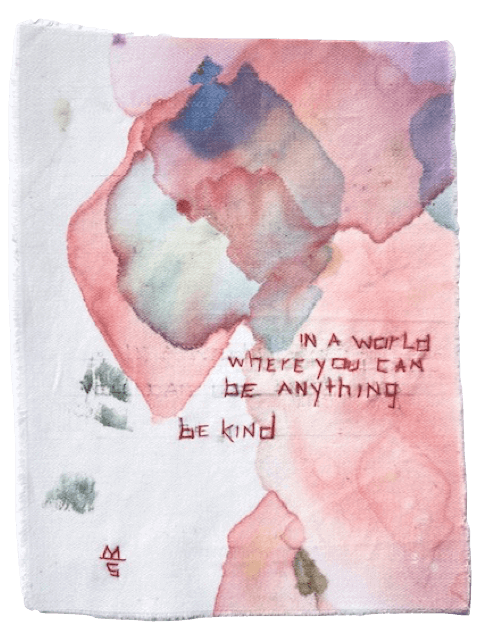 IN A WORLD
WHERE YOU CAN
BE ANYTHING
BE KIND
M
S